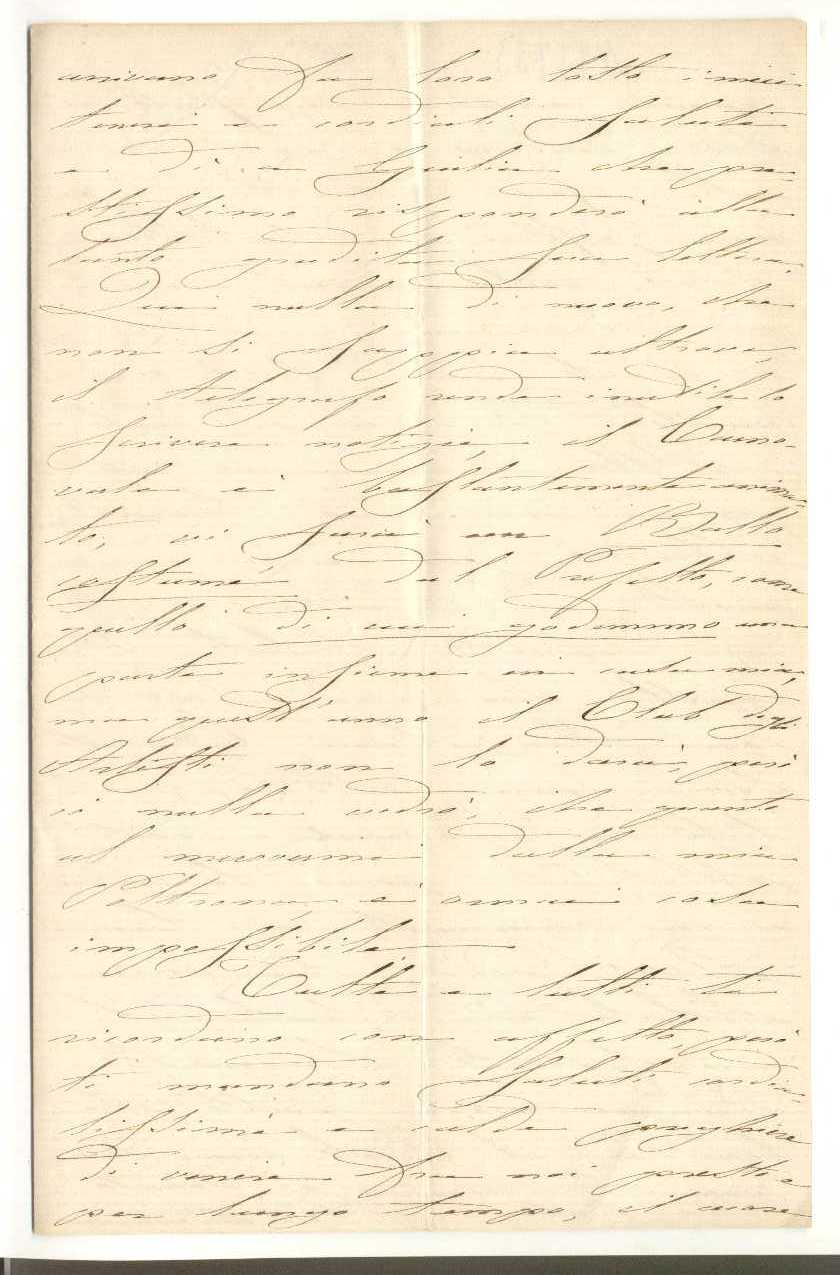 univano fra loro tosto i miei
teneri e cordiali saluti
e dì a Giulia che pre-
stissimo risponderò alla
tanto gradita sua lettera.
Qui nulla di nuovo, che
non si sappia altrove,
il telegrafo rende inutile lo
scrivere notizie, il Carno-
vale è bastantemente anima-
to, vi sarà un Ballo
costumé dal Prefetto, come
quello di cui godemmo una
parte insieme in casa mia,
ma quest'anno il Club degli
Artisti non lo darà, però
io nulla vedrò, che quanto
al muovermi dalla mia
Poltrona, è ormai cosa
impossibile.
Tutte e tutti ti
ricordano con affetto, però
ti mandano saluti cordia-
lissimi e calde preghiere
di venire fra noi presto e
per lungo tempo, il cuore